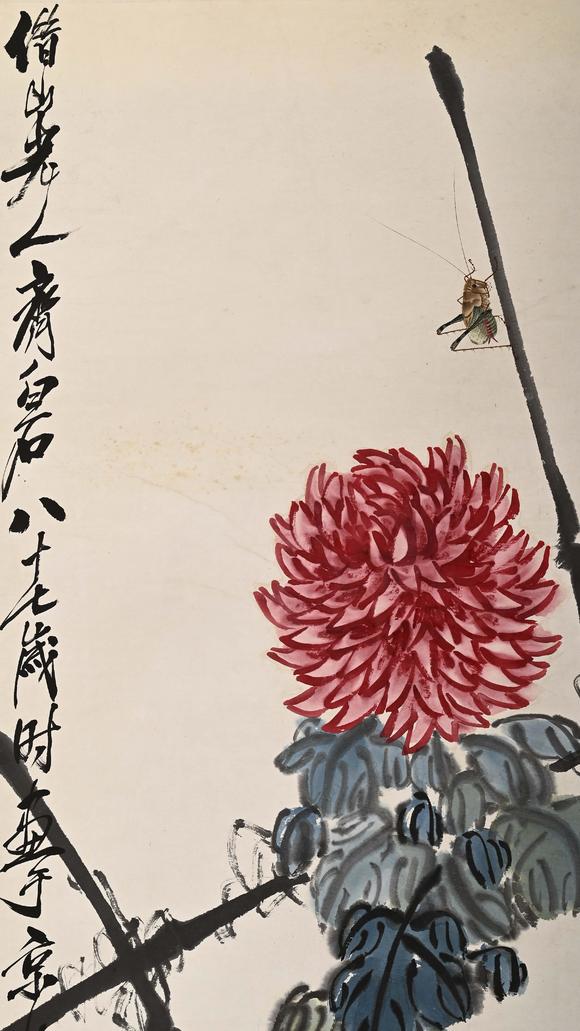 借山老人齊白石八十七歲时畫于京